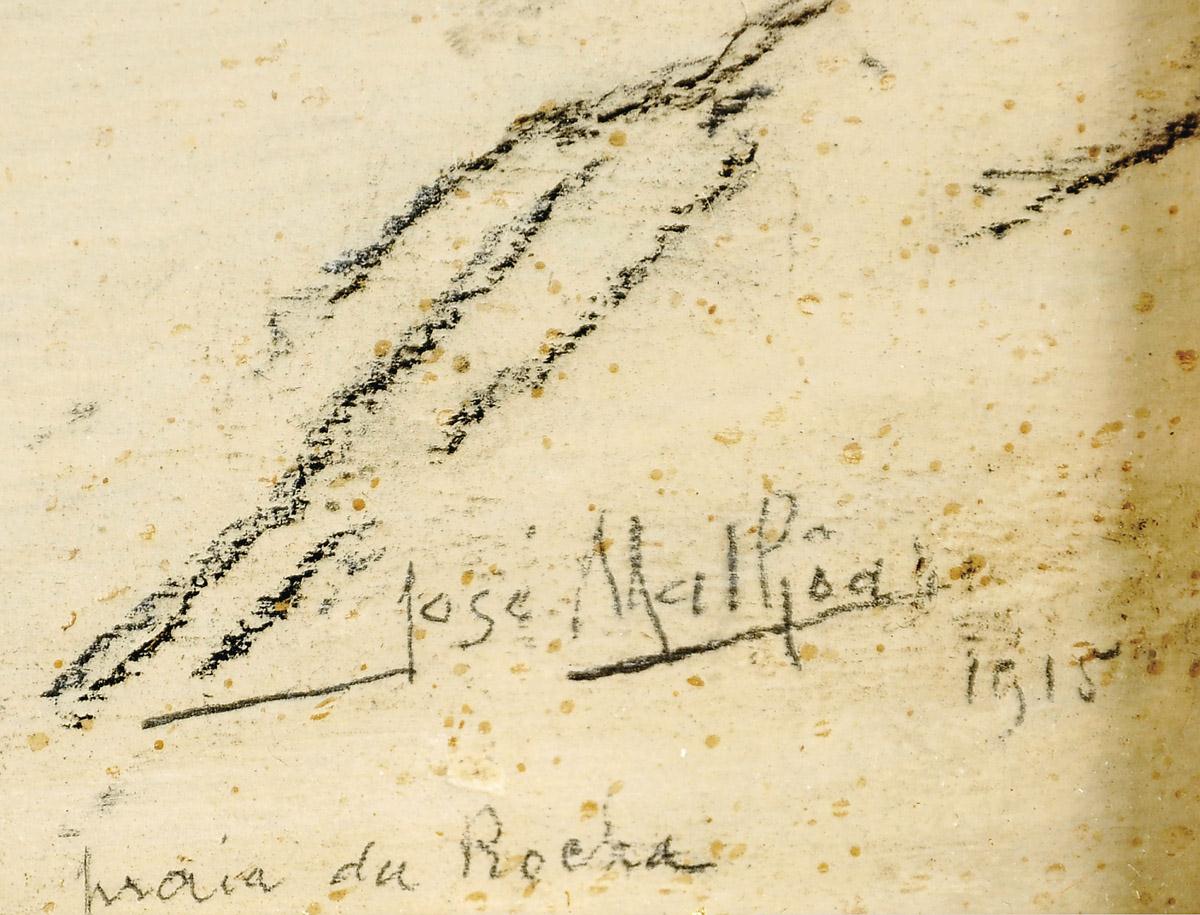 José Malhôa
1915
praia da Rocha